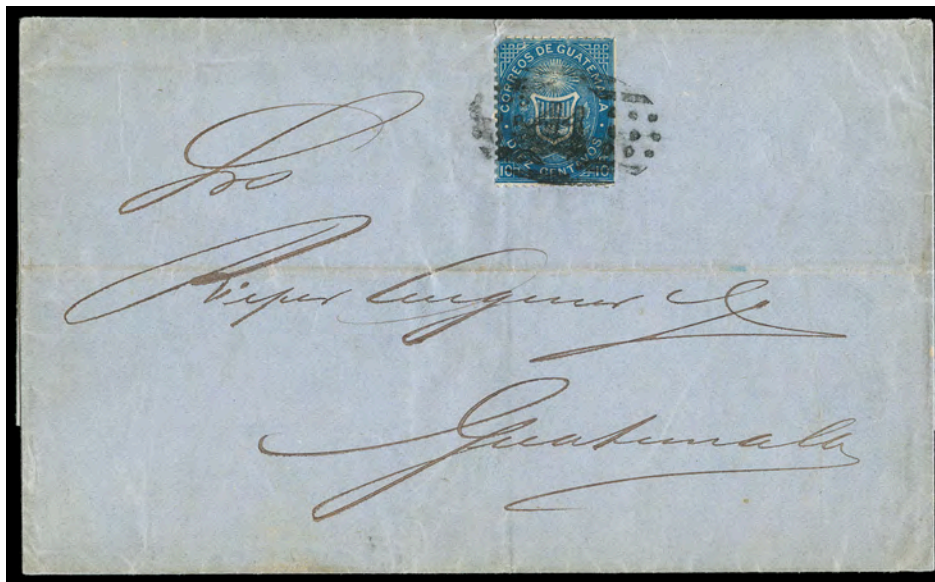 CORREOS DE GUATEMALA
DIEZ CENTAVOS
10 10
Rieper Augener & Co
Guatemala